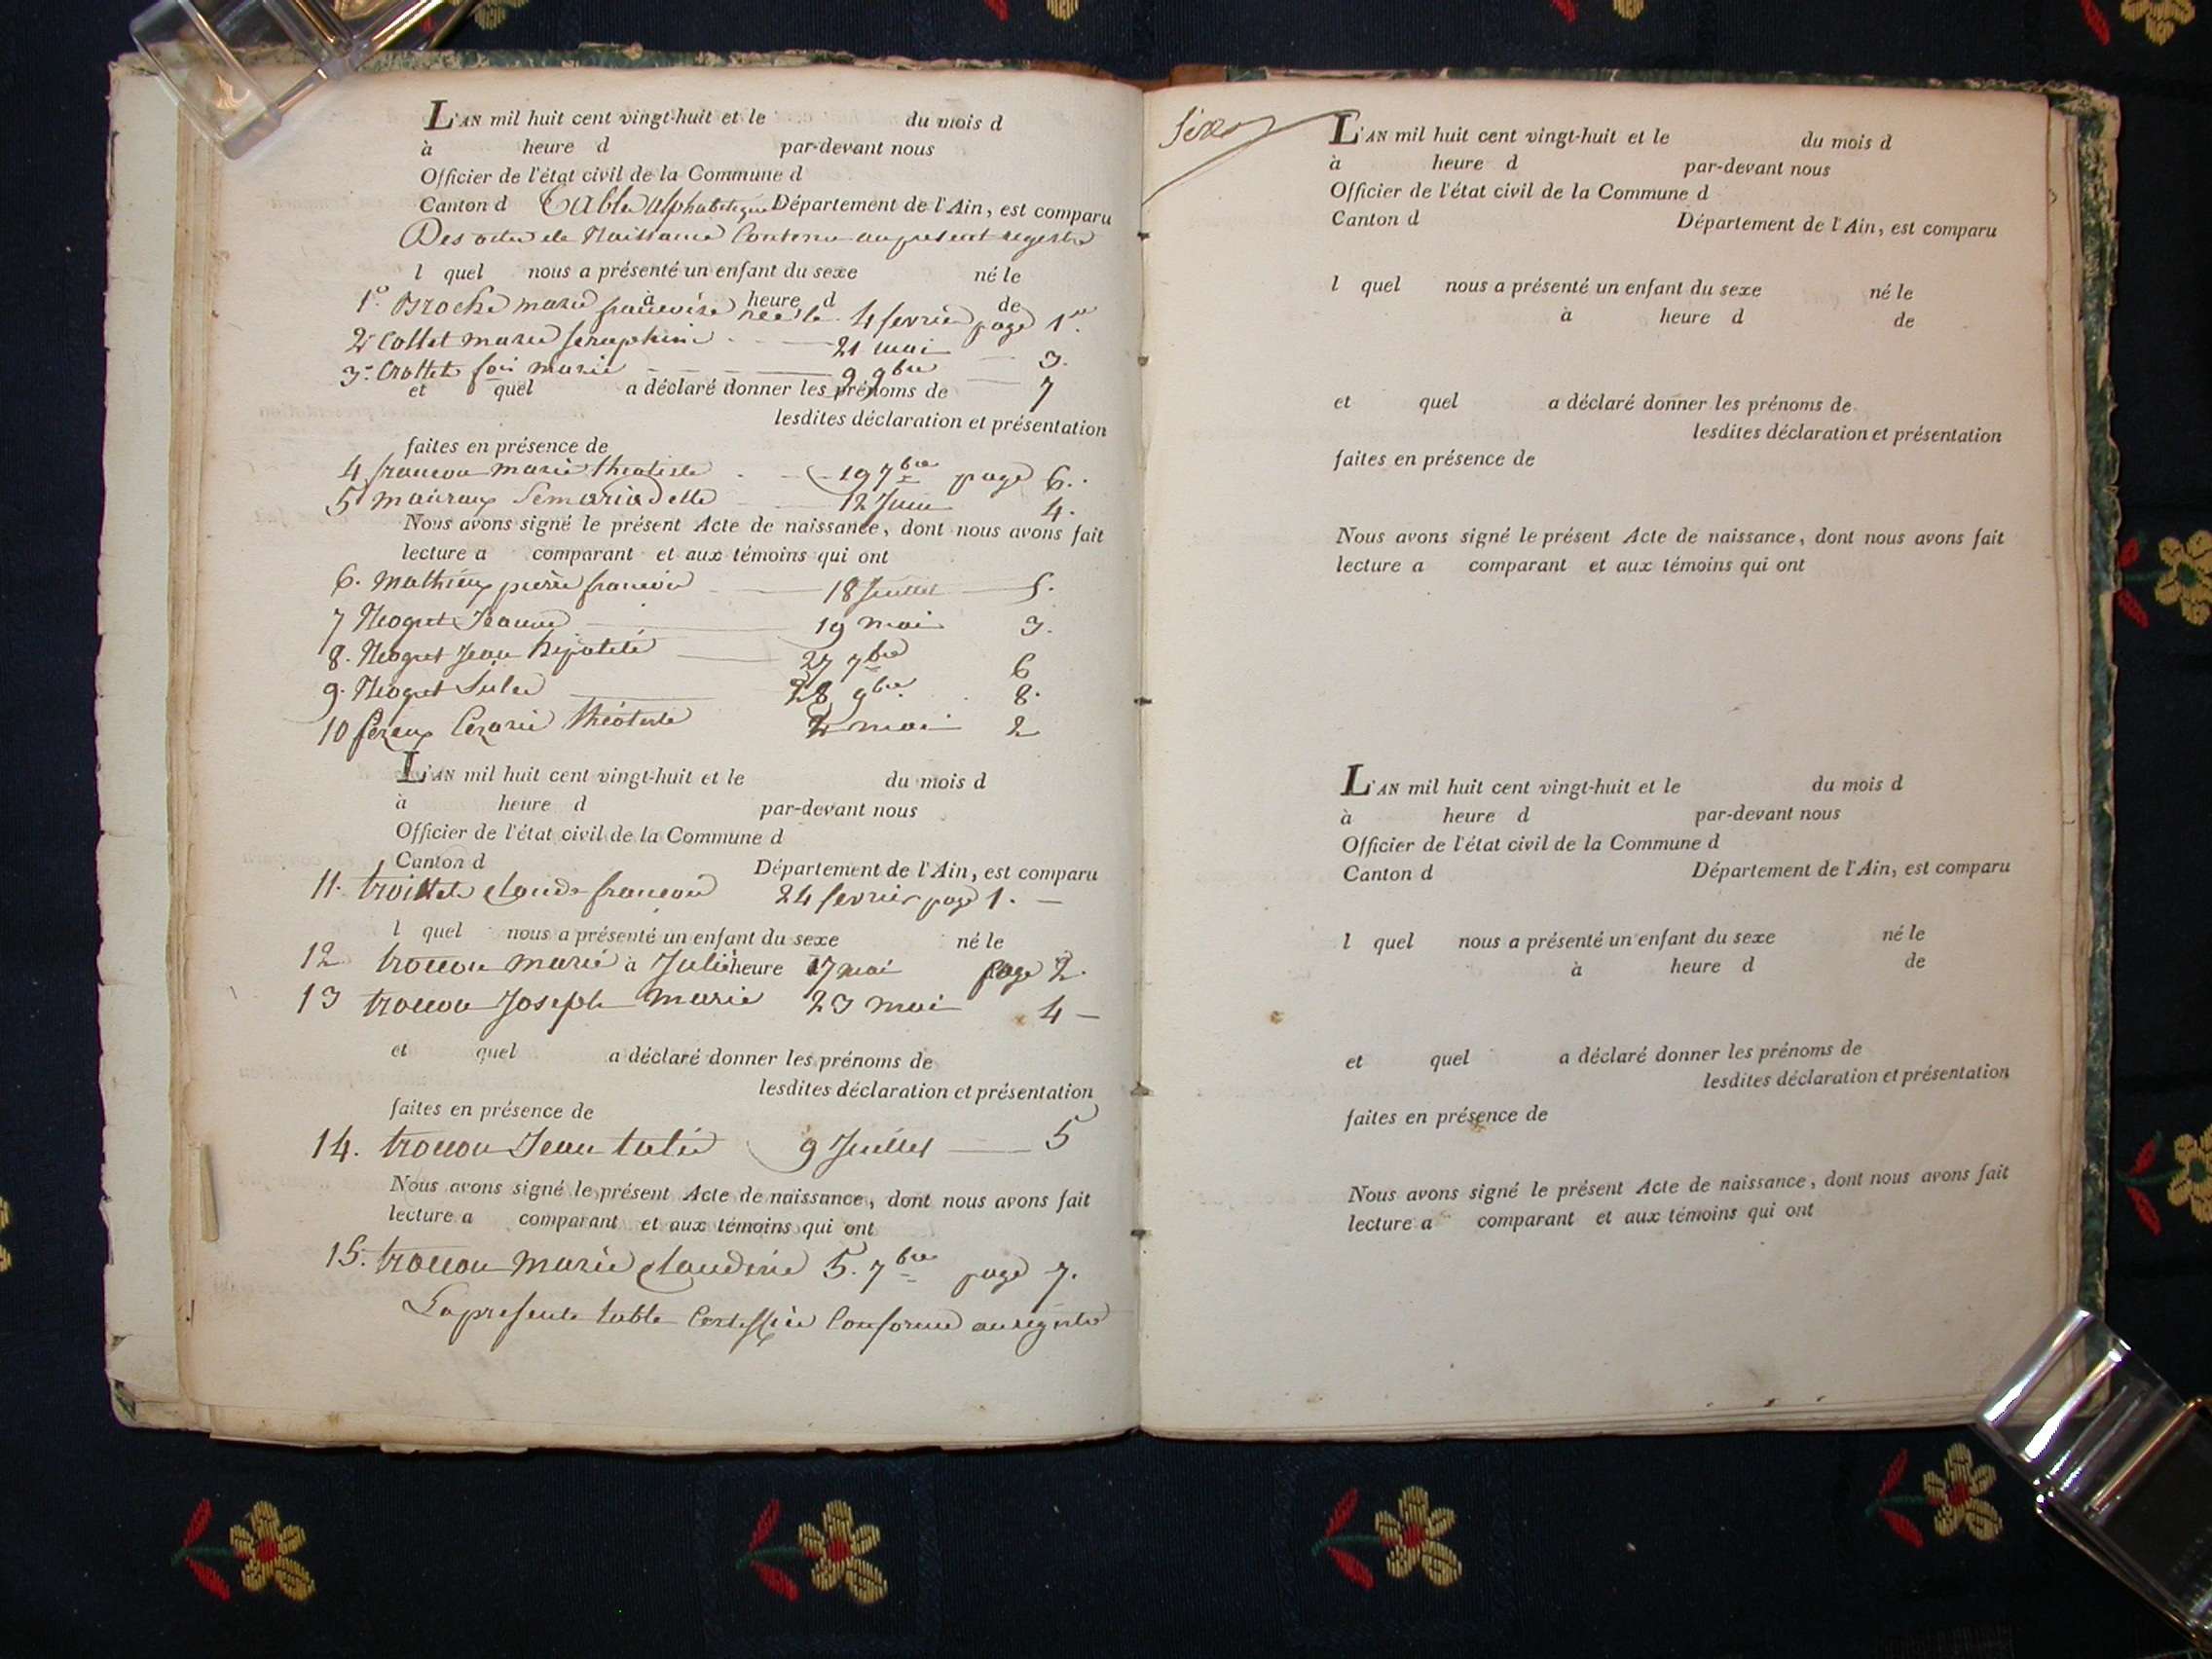 L'AN mil huit cent vingt-huit et le du mois d
à heure d par-devant nous
Officier de l'état civil de la Commune d
Canton d Table alphabetique Département de l'Ain, est comparu
Des actes de Naissance Contenu au present registre
l quel nous a présenté un enfant du sexe né le
à heure d de
1° Broche marie francoise née le 4 fevrier page 1re
2° Collet marie seraphine 21 mai 3.
3° Crottet foi marie 9 9bre 7
et quel a déclaré donner les prénoms de
lesdites déclaration et présentation
faites en présence de
4 francon marie théotiste 19 7bre page 6.
5 mairaux 12 Juin 4.
Nous avons signé le présent Acte de naissance, dont nous avons fait
lecture a comparant et aux témoins qui ont
6. Mathieux pierre francois 18 Juillet 5.
7 Nogret Jeanne 19 mai 3.
8. Nogret Jean hipolité 27 7bre 6
9. Nogret Julie 28 9bre 8.
10 Pereux Cezarie théotiste 2 mai 2
L'AN mil huit cent vingt-huit et le du mois d
à heure d par-devant nous
Officier de l'état civil de la Commune d
Canton d Département de l'Ain, est comparu
11. troillet claude francois 24 fevrier page 1.
l quel nous a présenté un enfant du sexe né le
12 troccon marie à Julie heure 17 mai page 2.
13 troccon Joseph Marie 23 mai 4
et quel a déclaré donner les prénoms de
lesdites déclaration et présentation
faites en présence de
14. troccon Jean 9 Juillet 5
Nous avons signé le présent Acte de naissance, dont nous avons fait
lecture a comparant et aux témoins qui ont
15. troccon marie claudine 5. 7bre page 7.
La presente table Certiffiée Conforme au registre
L'AN mil huit cent vingt-huit et le du mois d
à heure d par-devant nous
Officier de l'état civil de la Commune d
Canton d Département de l'Ain, est comparu
l quel nous a présenté un enfant du sexe né le
à heure d de
et quel a déclaré donner les prénoms de
lesdites déclaration et présentation
faites en présence de
Nous avons signé le présent Acte de naissance, dont nous avons fait
lecture a comparant et aux témoins qui ont
L'AN mil huit cent vingt-huit et le du mois d
à heure d par-devant nous
Officier de l'état civil de la Commune d
Canton d Département de l'Ain, est comparu
l quel nous a présenté un enfant du sexe né le
à heure d de
et quel a déclaré donner les prénoms de
lesdites déclaration et présentation
faites en présence de
Nous avons signé le présent Acte de naissance, dont nous avons fait
lecture a comparant et aux témoins qui ont